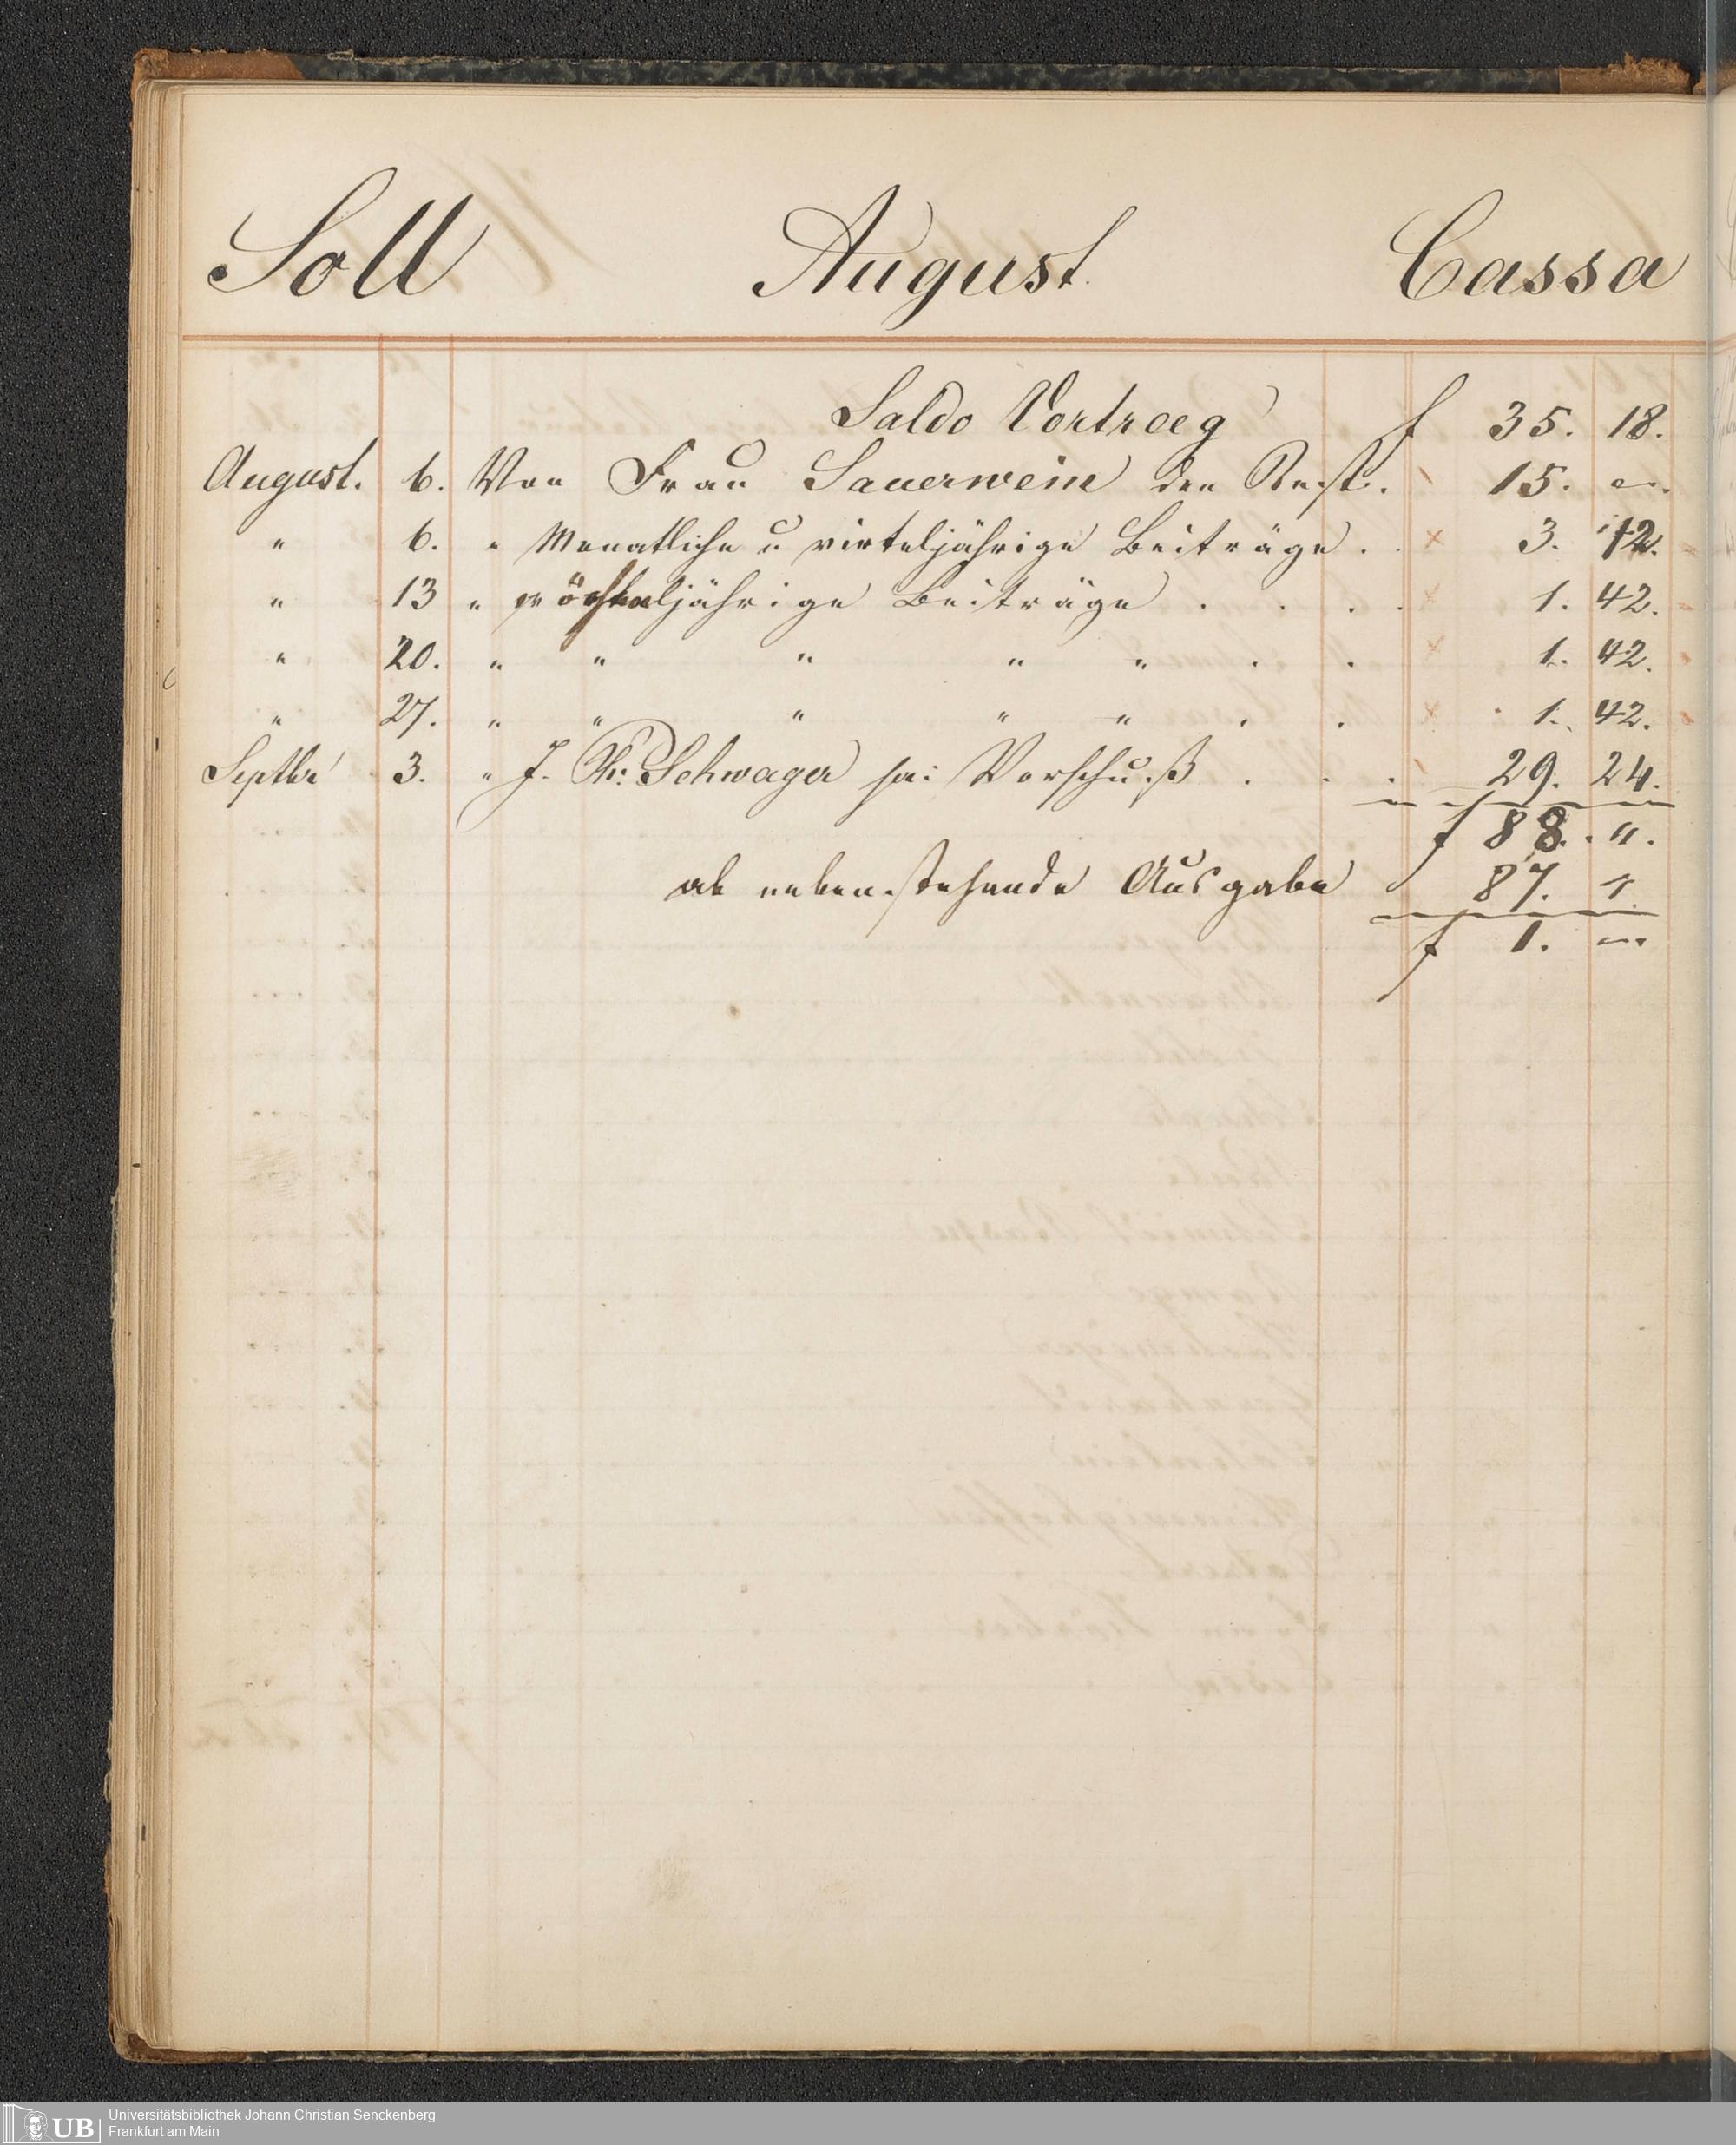 Soll August. Cassa
Saldo Vortrag f 35. 18.
August. 6. Von Frau Sauerwein den Rest. 15. „.
" 6. " Monatliche u virteljährige Beiträge . . 3. 12.
" 13 " jährige Beiträge . . . . 1. 42.
" 20. " " " " " . . 1. 42.
" 27. " " " " " . . 1. 42.
Septbr 3. " J. Schwager Vorschuß . . . 29. 24.
f 88. . „.
ab nebenstehende Ausgabe 87. 1
f 1. „.
UB Universitätsbibliothek Johann Christian Senckenberg
Frankfurt am Main